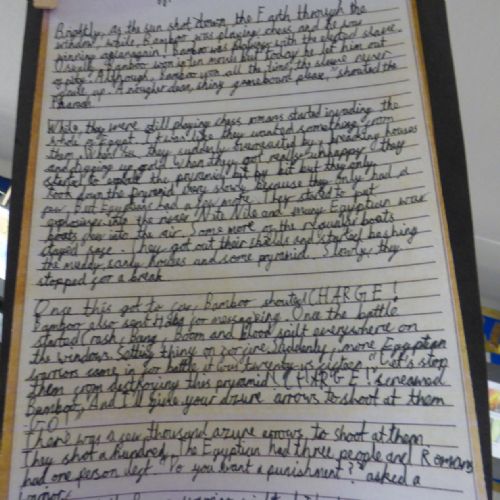 Brightly, as the sun shot down the Earth through the
window, while Bamboo was playing chess and he was
winning again! Bamboo was playing with the slave.
Usually Bamboo won in ten moves but today he let him out
Although, Bamboo won all the time, the slave never
gave up. "Another clean, shiny gameboard please," shouted the
Pharaoh.
While they were still playing chess romans started invading the
whole of Egypt. It was like they wanted something from
them. When they suddenly by breaking houses
and digging up gold. When they got really unhappy they
started to the pryamid bit by bit but they only
took down the pryamid very slowly because they only had a
few but Egyptians had a few more. They started to put
into the never Nile and many Egyptian war
boats into the air. Some more of the boats
stayed safe. They got out their shields and started bashing
the muddy, sandy houses and some pryamid. Slowly, they
stopped for a break
Once this got to far Bamboo shouted CHARGE!
Bamboo also sent for messageing. Once the battle
started Crash, bang, boom and blood spilt everywhere on
the windows. Setting things on fire. Suddenly, more Egyptian
warriors came in for battle it was twenty vs sixteen. "Let's stop
them from destroying this pryamid! CHARGE!" screamed
Bamboo, And I'll give your azure arrows to shoot at them
GO
There was a few thousand azure arrows to shoot at them
They shot a hundred. The Egyptian had three people and Romans
had one person left. "Do you want a punishment?" asked a